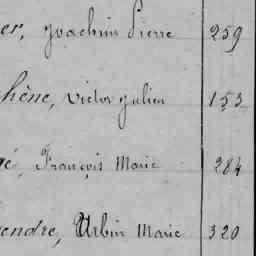 er, Joachim Pierre 259
hêne, Victor Julien 153
gé, François Marie 284
endre, Urbin Marie 320